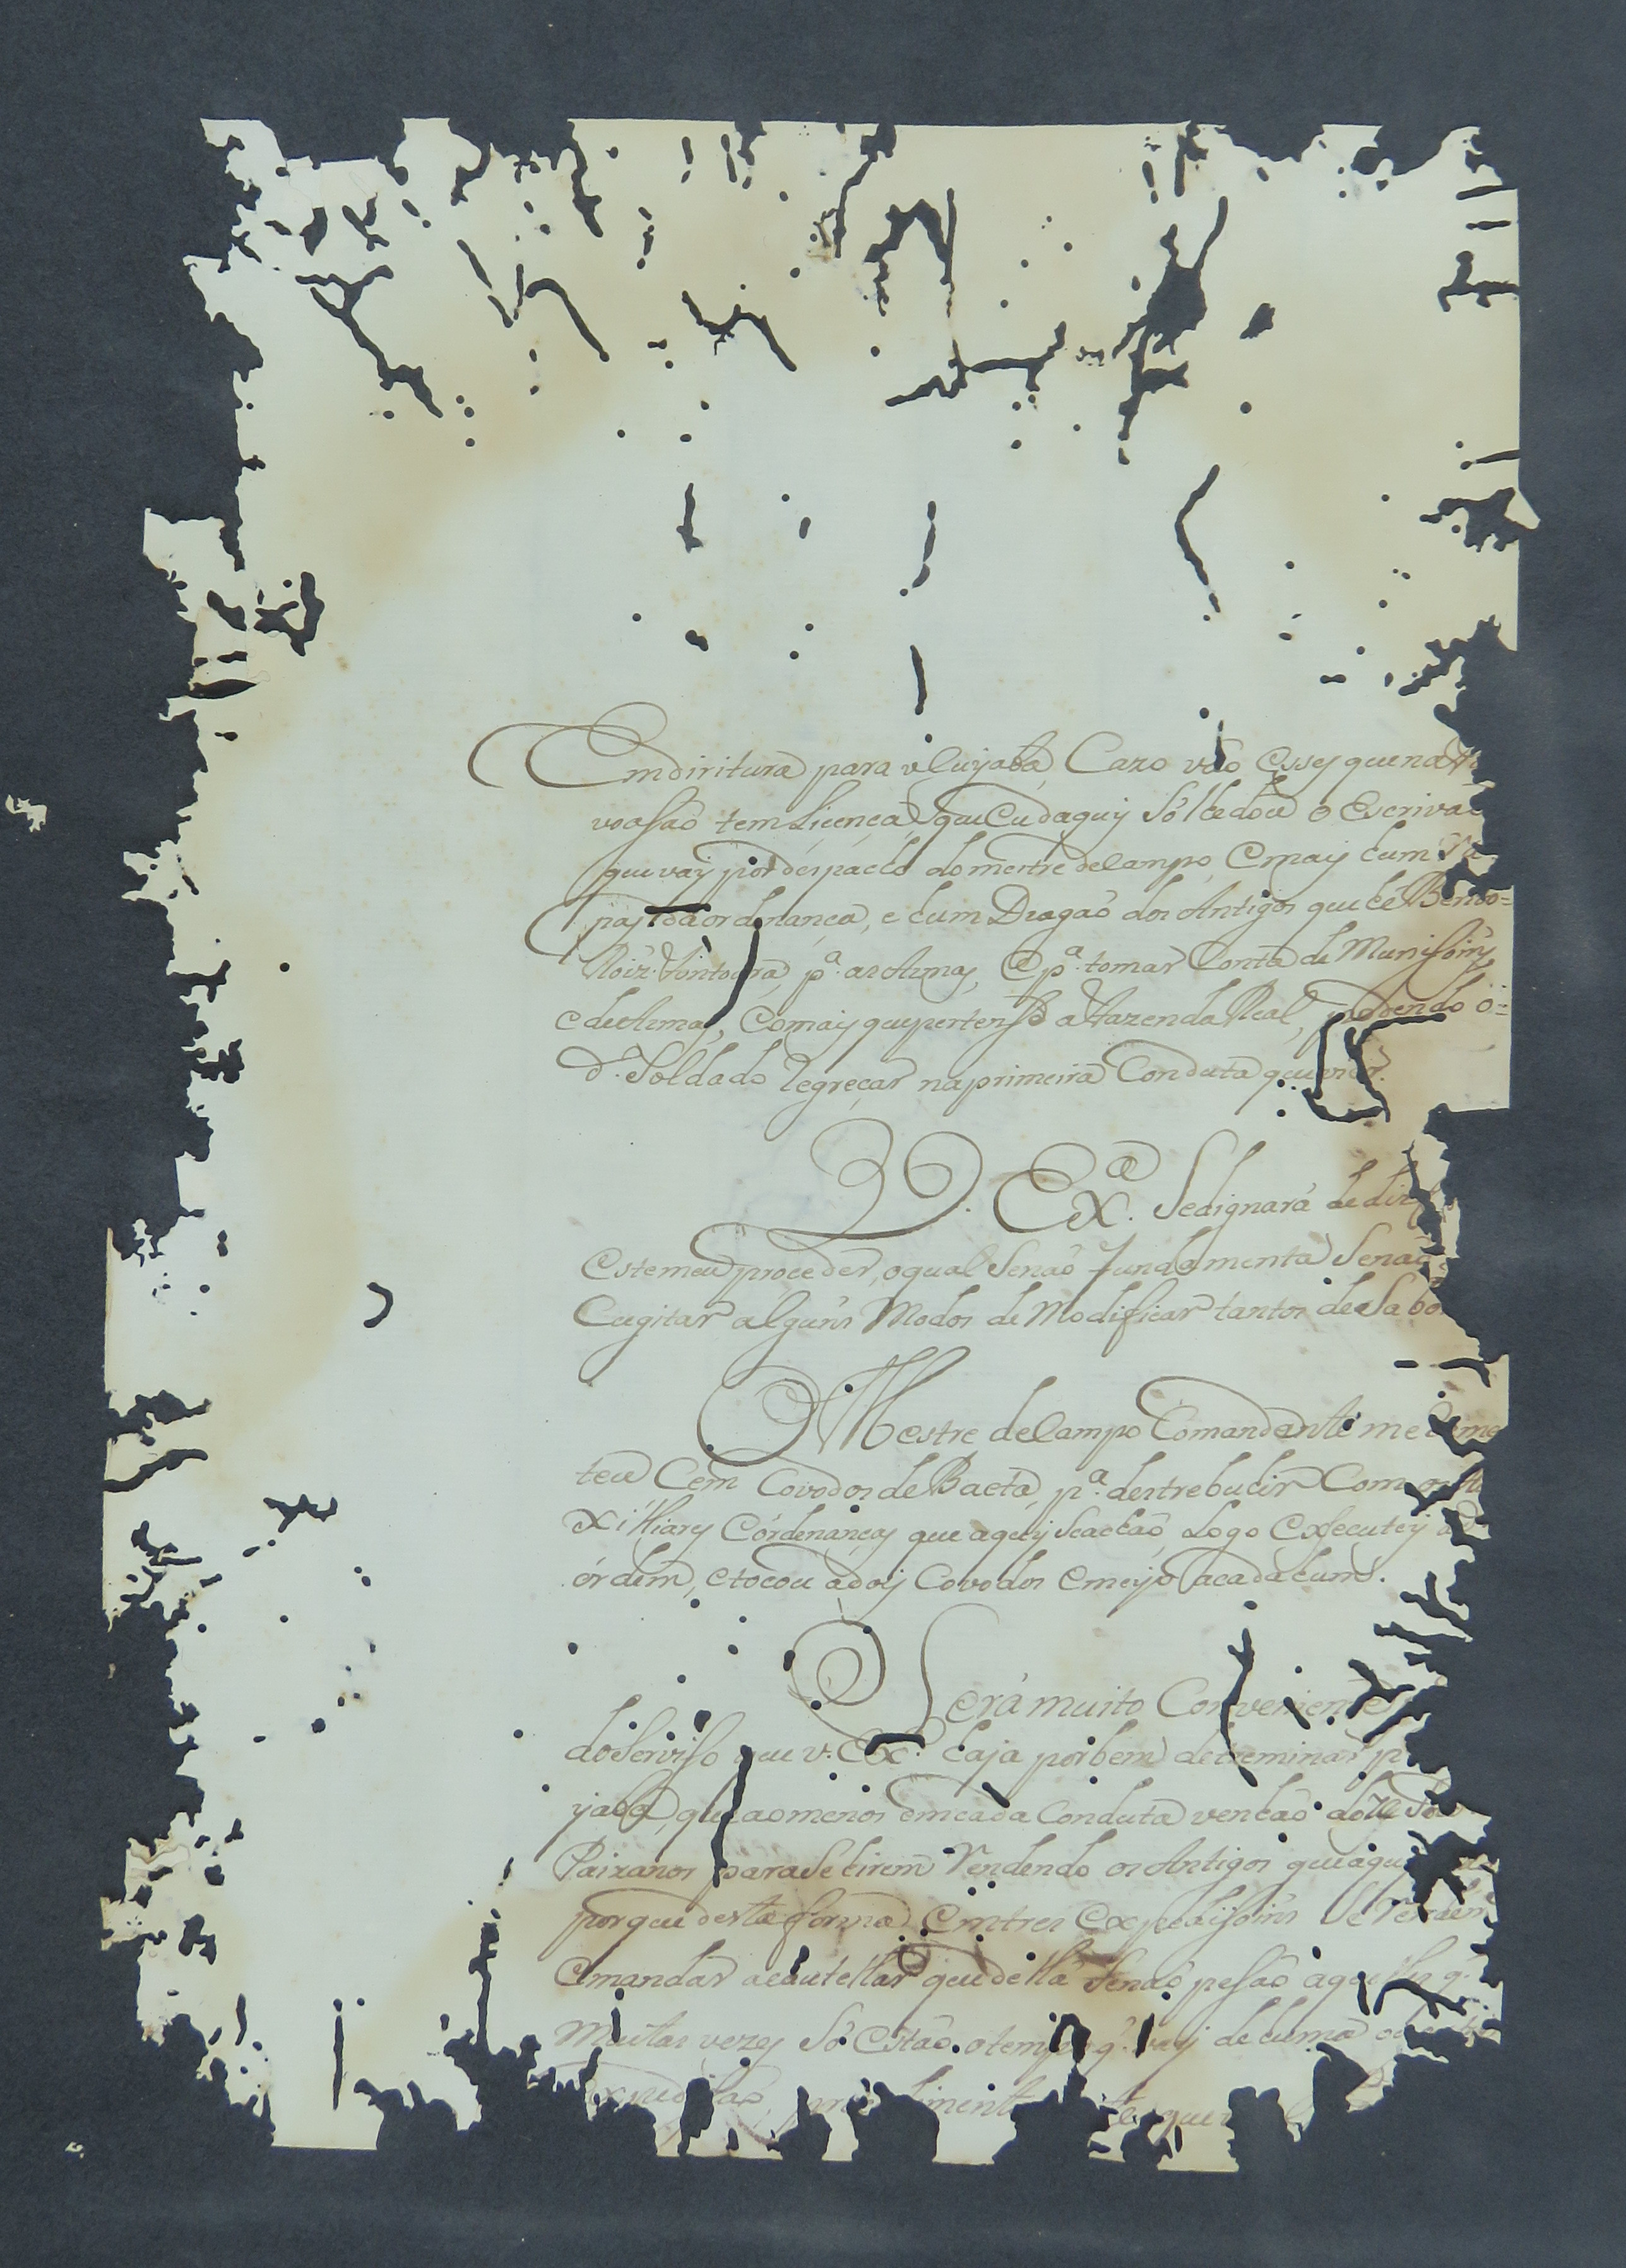 Emdiritura para o Cuyabá Cazo vão Essez que na
voasaõ tem Licença, que Eu daquy Só lhe dou o Escrivaõ
que vay por despacho do mestre de Campo, Emaiz hum
paz da ordenança, e hum Dragaõ dos Antigos que hé Bento=
Roiz Fontoura, p.ª as Armaz, e p.ª tomar Conta de Munisoins
e de Armaz, Comaiz que pertense a Fazenda Real, podendo o=
d.º Soldado Regreçar na primeira Conduta que vier.
V. Ex.ª Se dignará de
este meu proceder, o qual Senaõ fundamenta Senaõ
Cugitar alguns Modos de Modificar tantos desabo
O Mestre de Campo Comandante me
teu Cem Covodos de Baeta, p.ª destrebuhir Com os
xilliarez Eordenançaz que aquy Seachaõ, Logo Exsecutey a
órdem, e tocou a doiz Covodos e meyo a cada hum.
Será muito Conveniente
do Serviso que V. Ex.ª haja por bem detreminar p
yabá, que ao menos em cada Conduta venhaõ doze
Paizanos para Se hirem Rendendo os Antigos que aquy
porque desta forma Em tres Expedisoins Se Rendem
Emandar acautellar que de llá Senaõ pesaõ aquelles q.
Muitas vezez Só Estaõ o tempo q. vay de huma